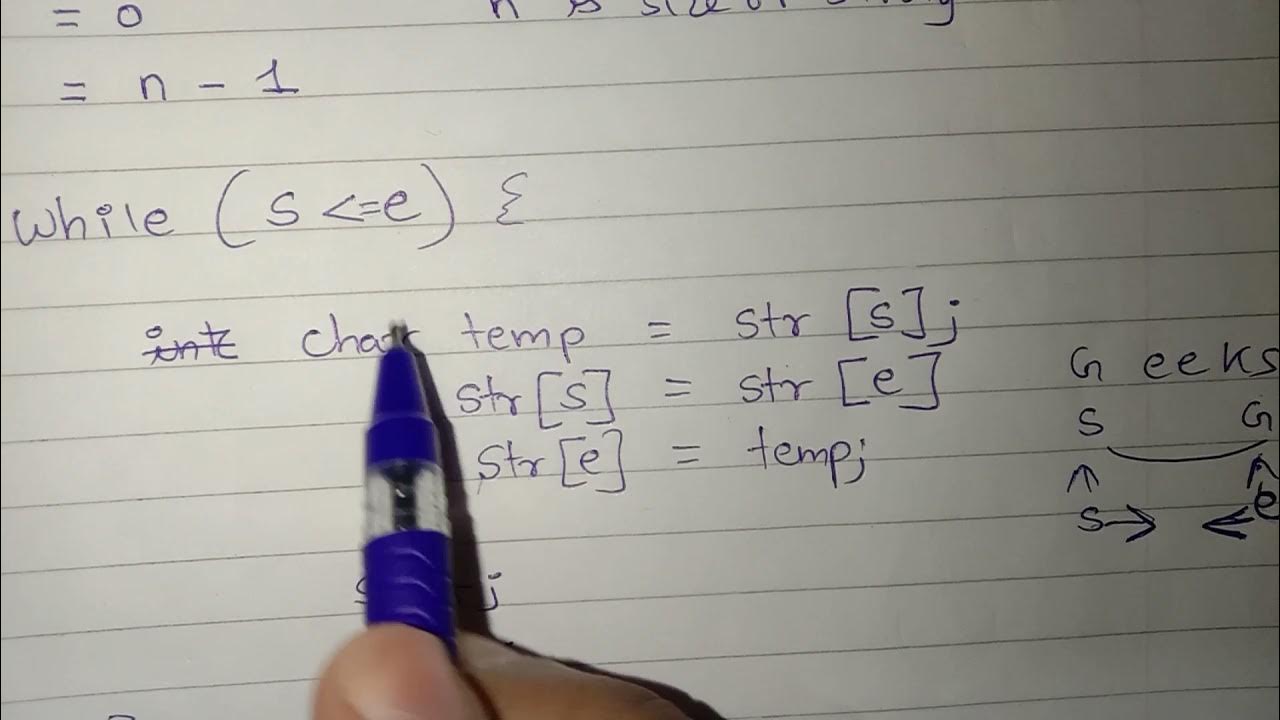 = 0 n is size of
= n - 1
While (s <= e) {
int char temp = str [s];
str[s] = str [e]
str[e] = temp;
Geeks
S G
s e